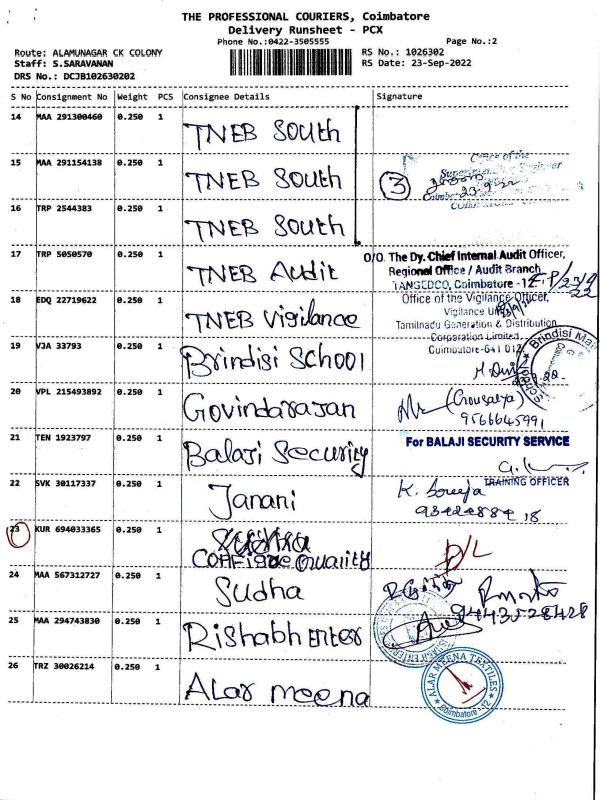 THE PROFESSIONAL COURIERS, Coimbatore
Delivery Runsheet - PCX
Phone No.:0422-3505555 Page No.:2
Route: ALAMUNAGAR CK COLONY RS No.: 1026302
Staff: S.SARAVANAN RS Date: 23-Sep-2022
DRS No.: DCJB102630202
S No Consignment No Weight PCS Consignee Details Signature
14 MAA 291300460 0.250 1 TNEB South
15 MAA 291154138 0.250 1 TNEB South 3 Office of the
16 TRP 2544383 0.250 1 TNEB South
17 TRP 5050570 0.250 1 TNEB Audit O/O. The Dy. Chief Internal Audit Officer,
Regional Office / Audit Branch
TANGEDCO, Coimbatore -12
18 EDQ 22719622 0.250 1 TNEB Vigilance Office of the Vigilance Officer,
Vigilance
Tamilnadu Generation & Distribution
Corporation Limited,
Coimbatore-641 012
19 VJA 33793 0.250 1 Brindisi School Brindisi
20 VPL 215493892 0.250 1 Govindarajan (Gousalya)
9566645991
21 TEN 1923797 0.250 1 Balaji Security For BALAJI SECURITY SERVICE
TRAINING OFFICER
22 SVK 30117337 0.250 1 Janani
23 KUR 694033365 0.250 1 Quality D/L
24 MAA 567312727 0.250 1 Sudha
9443528428
25 MAA 294743830 0.250 1 Rishabh Enter
26 TRZ 30026214 0.250 1 Alar meena ALAR MEENA TEXTILES
Coimbatore - 12